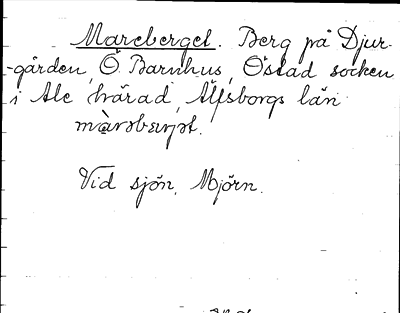 Mareberget. Berg på Djur-
-gården, Ö Barnhus, Östad socken
i Ale härad, Älfsborgs län
Vid sjön, Mjörn.